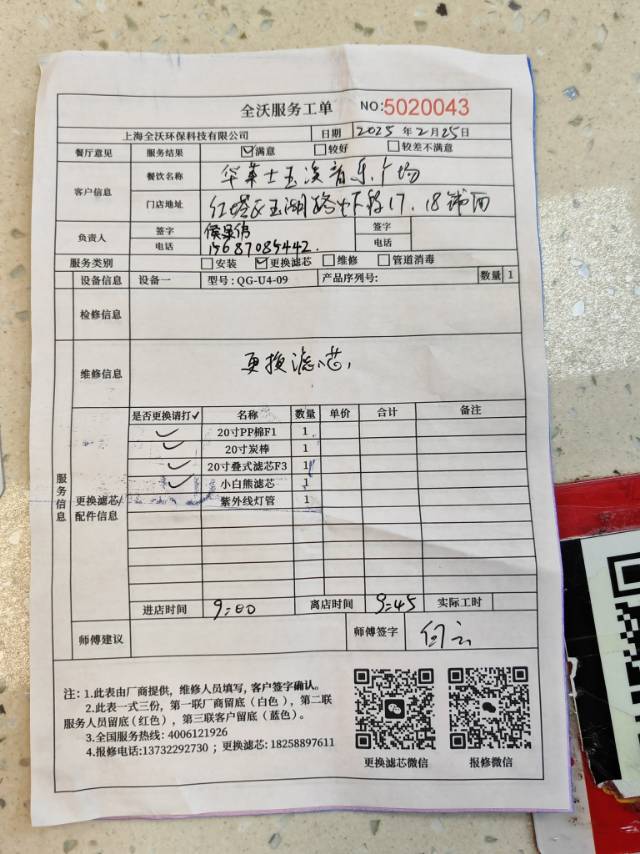 全沃服务工单 NO:5020043
上海全沃环保科技有限公司 日期 2025 年 2 月 25 日
餐厅意见 服务结果 ☑满意 □较好 □较差不满意
客户信息 餐饮名称 华莱士玉溪音乐广场
门店地址 红塔区玉湖路 17.18铺面
负责人 签字 签字
电话 15687085442. 电话
服务类别 □安装 ☑更换滤芯 □维修 □管道消毒
设备信息 设备一 型号:QG-U4-09 产品序列号: 数量 1
检修信息
维修信息 更换滤芯,
服务信息
更换滤芯/配件信息
是否更换请打✓ 名称 数量 单价 合计 备注
✓ 20寸PP棉F1 1
✓ 20寸炭棒 1
✓ 20寸叠式滤芯F3 1
✓ 小白熊滤芯 1
紫外线灯管 1
进店时间 9:00 离店时间 9:45 实际工时
师傅建议 师傅签字
注: 1.此表由厂商提供, 维修人员填写, 客户签字确认。
2.此表一式三份, 第一联厂商留底 (白色), 第二联
服务人员留底(红色), 第三联客户留底 (蓝色)。
3.全国服务热线: 4006121926
4.报修电话:13732292730 ; 更换滤芯: 18258897611
更换滤芯微信 报修微信